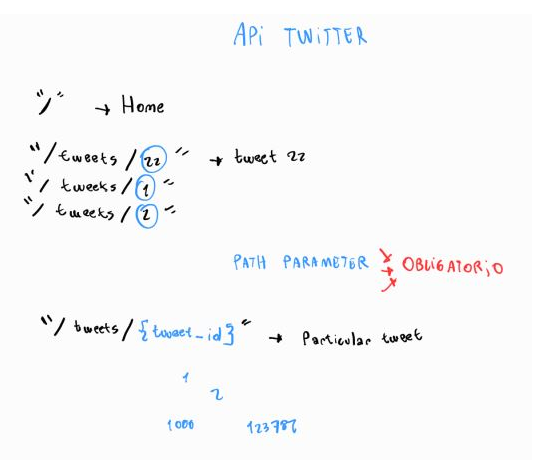 APi TWITTER
"/" → Home
"/tweets/22" → tweet 22
"/tweeks/1"
"/tweets/2"
PATH PARAMETER → OBLIGATORiO
"/tweets/{tweet_id}" → Particular tweet
1
2
1000 123786